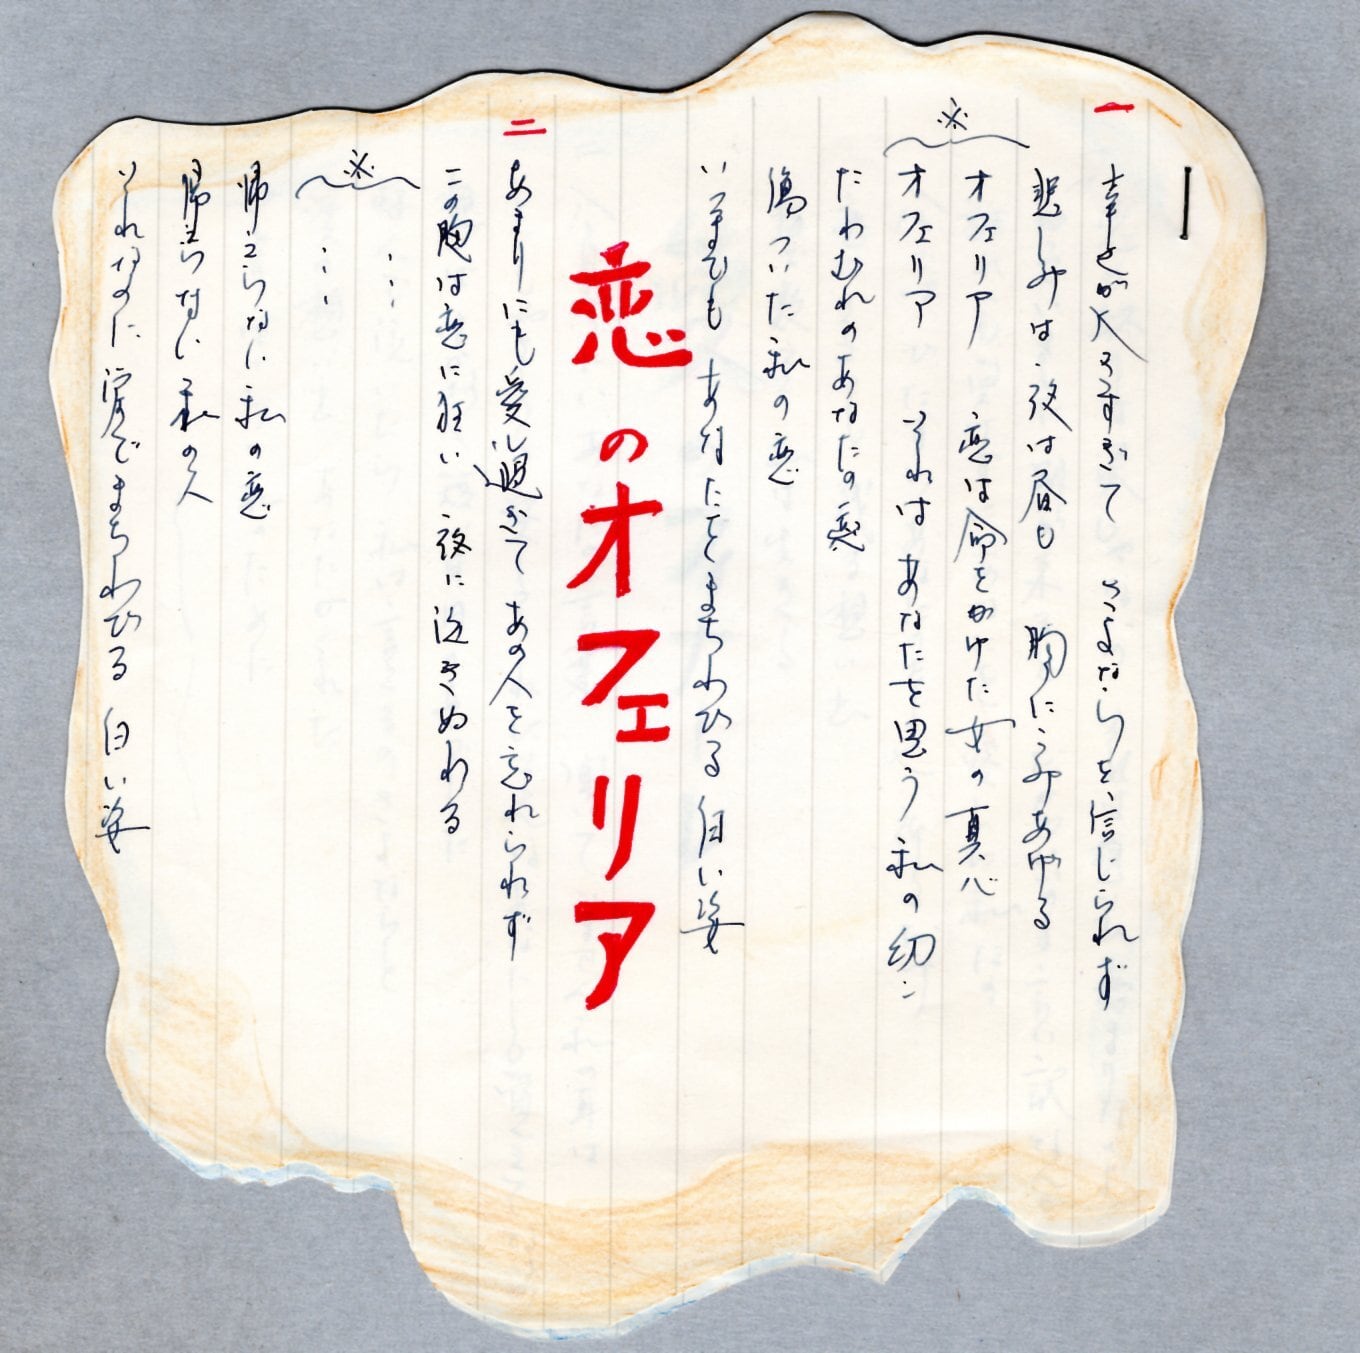 一
幸せが大きすぎて さよならを信じられず
悲しみは 夜は昼も 胸にこみあげる
※
オフェリア 恋は命をかけた女の真心
オフェリア それは あなたを思う 私の幻
たわむれのあなたの恋
傷ついた私の恋
いつまでも あなたをまちわびる 白い姿
恋のオフェリア
二
あまりにも愛し過ぎて あの人を忘れられず
この胸は恋に狂い 夜に泣きぬれる
※
……
……
帰らない私の恋
帰らない 私の人
それなのに 涙でまちわびる 白い姿